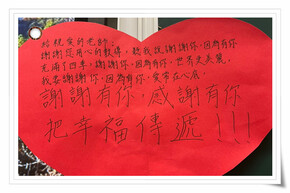 給親愛的老師：
謝謝您用心的教導，聽我說謝謝你，因為有你
充滿了四季，謝謝你，因為有你，世界更美麗，
我要謝謝你，因為有你，愛常在心底，
謝謝有你，感謝有你
把幸福傳遞!!!